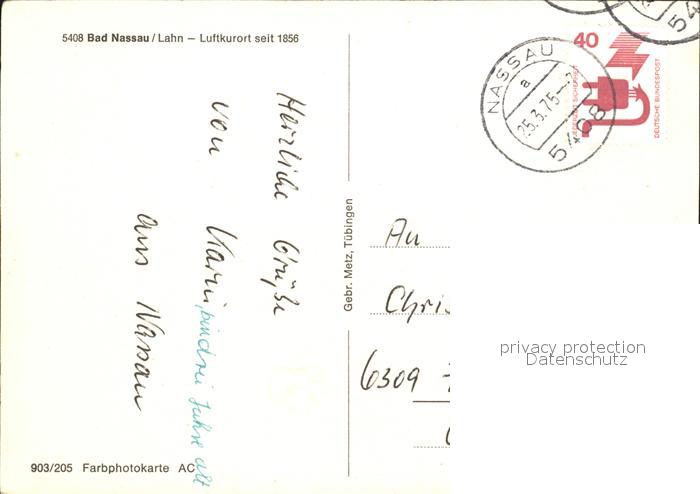 5408 Bad Nassau / Lahn – Luftkurort seit 1856
Herzliche Grüße
von Karin, bin drei Jahre alt
aus Nassau
903/205 Farbphotokarte AC
Gebr. Metz, Tübingen
40
DEUTSCHE BUNDESPOST
NASSAU
a
25.3.75
5408
An
Chris
6309
privacy protection
Datenschutz